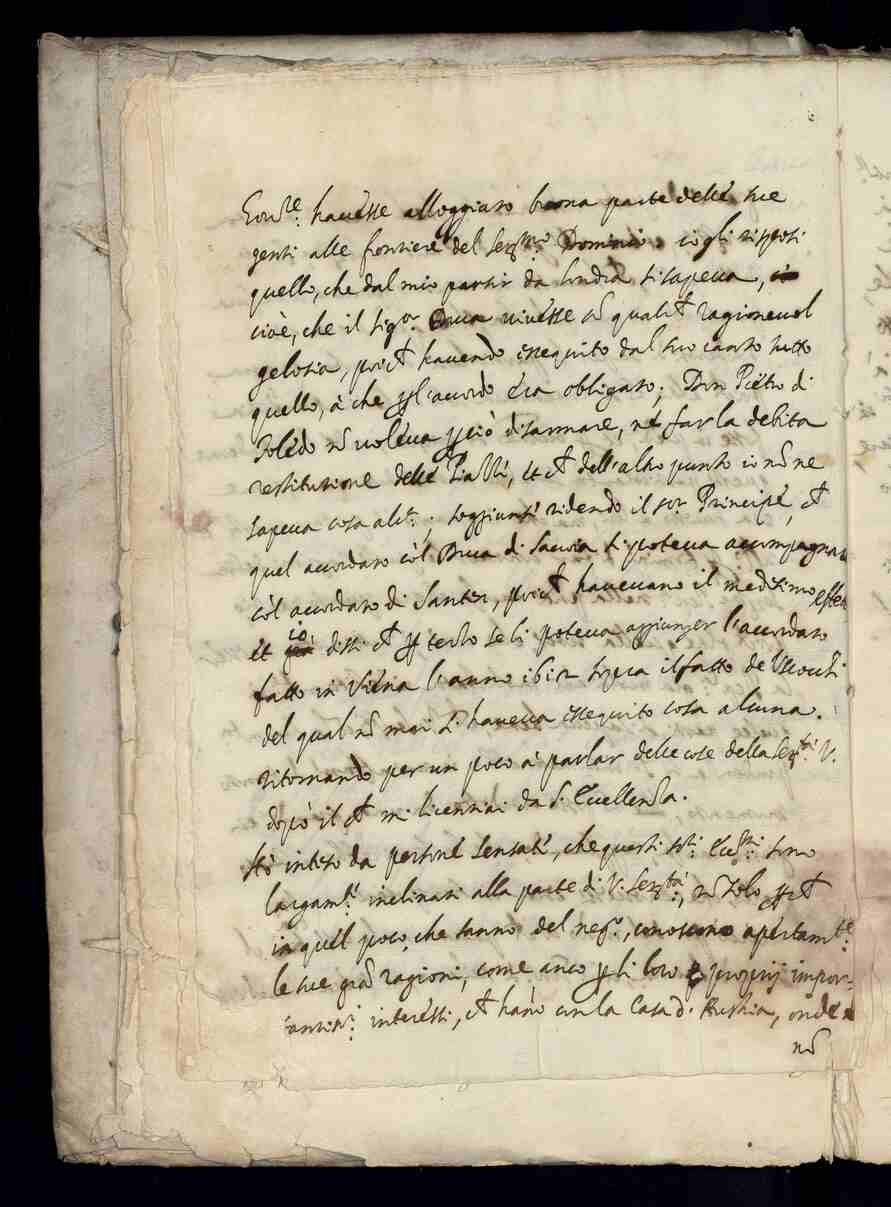 Gover.re havesse alloggiato buona parte delle sue
genti alle frontiere del Ser.mo Dominio; io gli risposi
quello, che dal mio partir da Londra si sapeva,
cioè, che il Sig.r Duca vivesse cõ qualc͂he ragionevol
gelosia, poic͂he havendo esseguito dal suo canto tutto
quello, à che p l'accordo era obligato; Don Pietro di
Toledo nõ voleva p ciò disarmare, né far la debita
restitutione delle Piazze, et c͂he dell'altro punto io nõ ne
sapeva cosa alc.a; soggiunse ridendo il s.or Principe, c͂he
quel accordato còl Duca di Savoia si poteva accompagnar
còl accordato di Santen, poic͂he havevano il medesimo effetto
et io dissi c͂he p terzo se li poteva aggiunger l'accordato
fatto in Viena l'anno 1612 sopra il fatto de Uscochi
del qual nõ mai si haveva esseguito cosa alcuna.
ritornando per un poco à parlar delle cose della Ser.tà V.
dopò il c͂he mi licentiai da S. Eccellenza.
Hò inteso da persone sensate, che questi s.ri Ecc.mi sono
largam.te inclinati alla parte di V. Ser.tà, nõ solo p c͂he
in quel poco, che sanno del neg.o, conoscono apertam.te
le sue grãd ragioni, come anco p li loro proprij impor-
tantiss.i interessi, c͂he hãno con la Casa d'Austria, onde
nõ